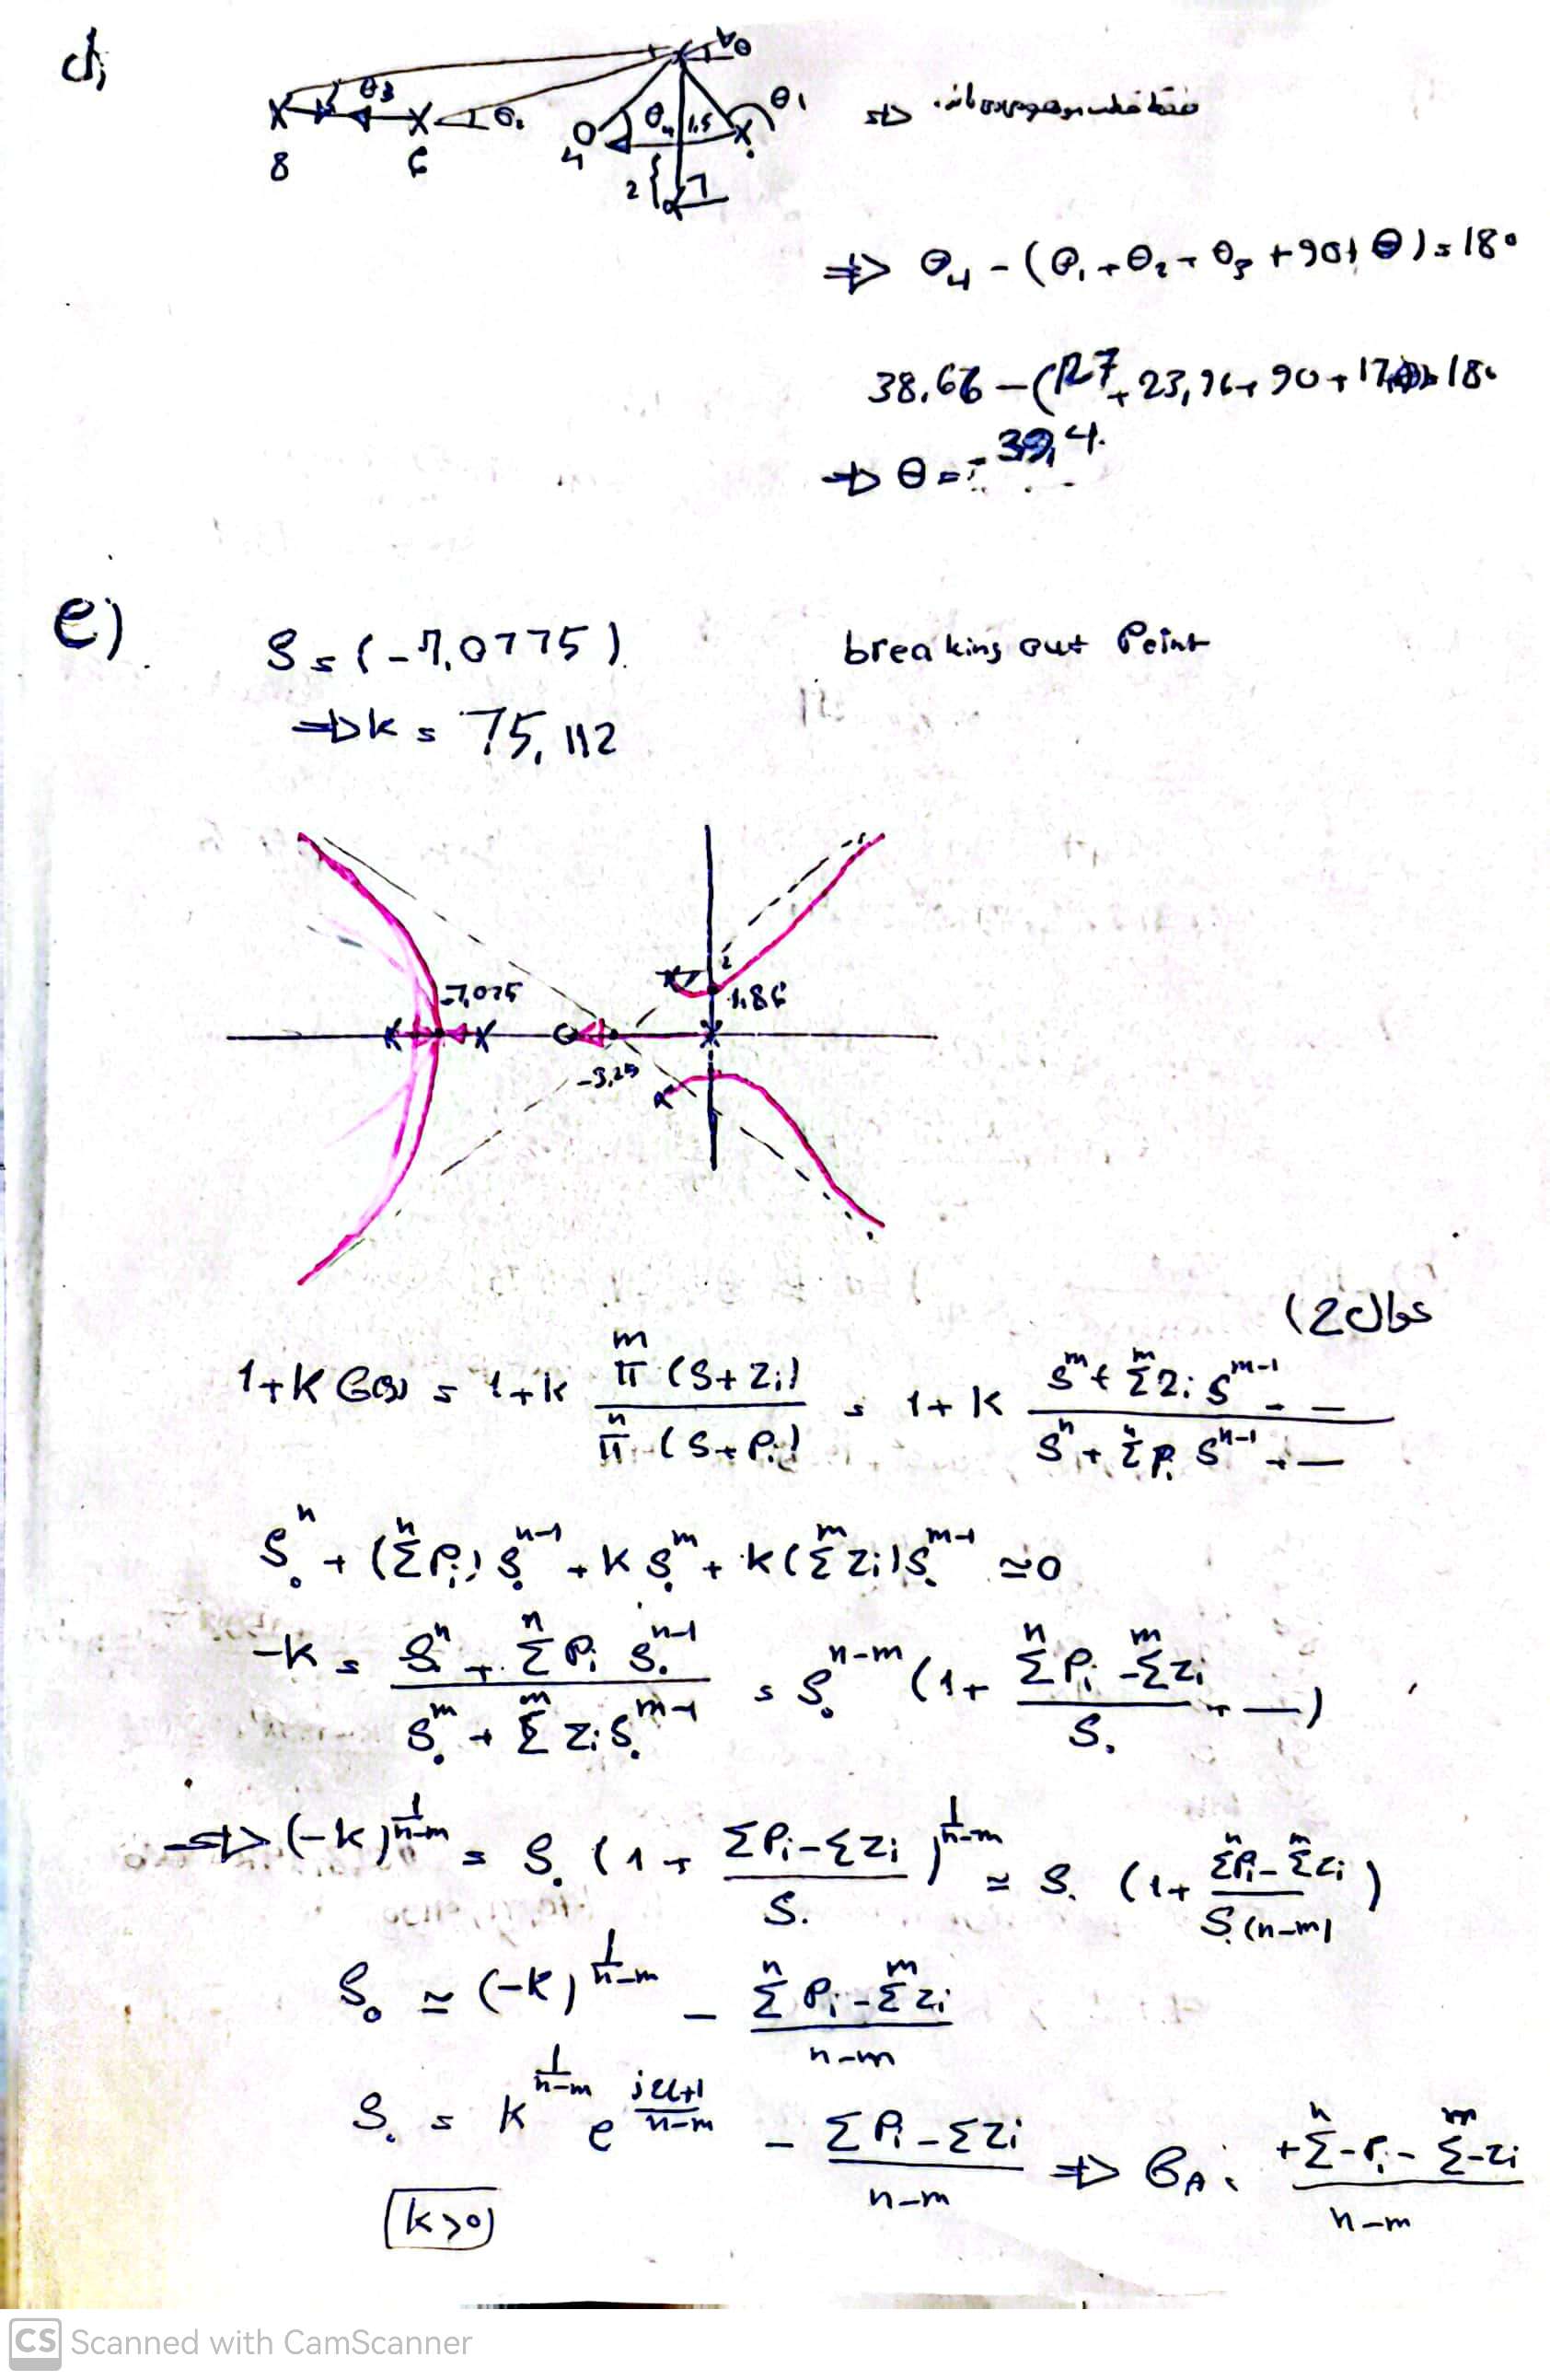 d)
θ3 θ2 θ4 1.5 θ1 θ
8 6 4 2
⇒ θ4 - (θ1 + θ2 + θ3 + 90 + θ) = 180
⇒ θ = -39,4
e)
S = (-7,0775) breaking out Point
⇒ k = 75,112
-7,075 1.86
-3,25
سوال 2)
1+K G(s) = 1+k \frac{\prod^{m} (S+Zi)}{\prod^{n} (S+Pi)} = 1+k \frac{S^{m} + \sum^{m} Zi S^{m-1} - -}{S^{n} + \sum^{n} Pi S^{n-1} + -}
S_0^{n} + (\sum^{n} Pi) S_0^{n-1} + K S_0^{m} + k (\sum^{m} Zi) S_0^{m-1} ≃ 0
-k = \frac{S_0^{n} + \sum^{n} Pi S_0^{n-1}}{S_0^{m} + \sum^{m} Zi S_0^{m-1}} = S_0^{n-m} (1 + \frac{\sum^{n} Pi - \sum^{m} Zi}{S_0} + —)
⇒ (-k)^{\frac{1}{n-m}} = S_0 (1 + \frac{\sum Pi - \sum Zi}{S_0})^{\frac{1}{n-m}} ≃ S_0 (1 + \frac{\sum^{n} Pi - \sum^{m} Zi}{S_0 (n-m)})
S_0 ≃ (-k)^{\frac{1}{n-m}} - \frac{\sum^{n} Pi - \sum^{m} Zi}{n-m}
S_0 = k^{\frac{1}{n-m}} e^{j\frac{2l+1}{n-m}} - \frac{\sum Pi - \sum Zi}{n-m} ⇒ σ_A = \frac{+\sum^{n} -Pi - \sum^{m} -Zi}{n-m}
k>0
CS Scanned with CamScanner